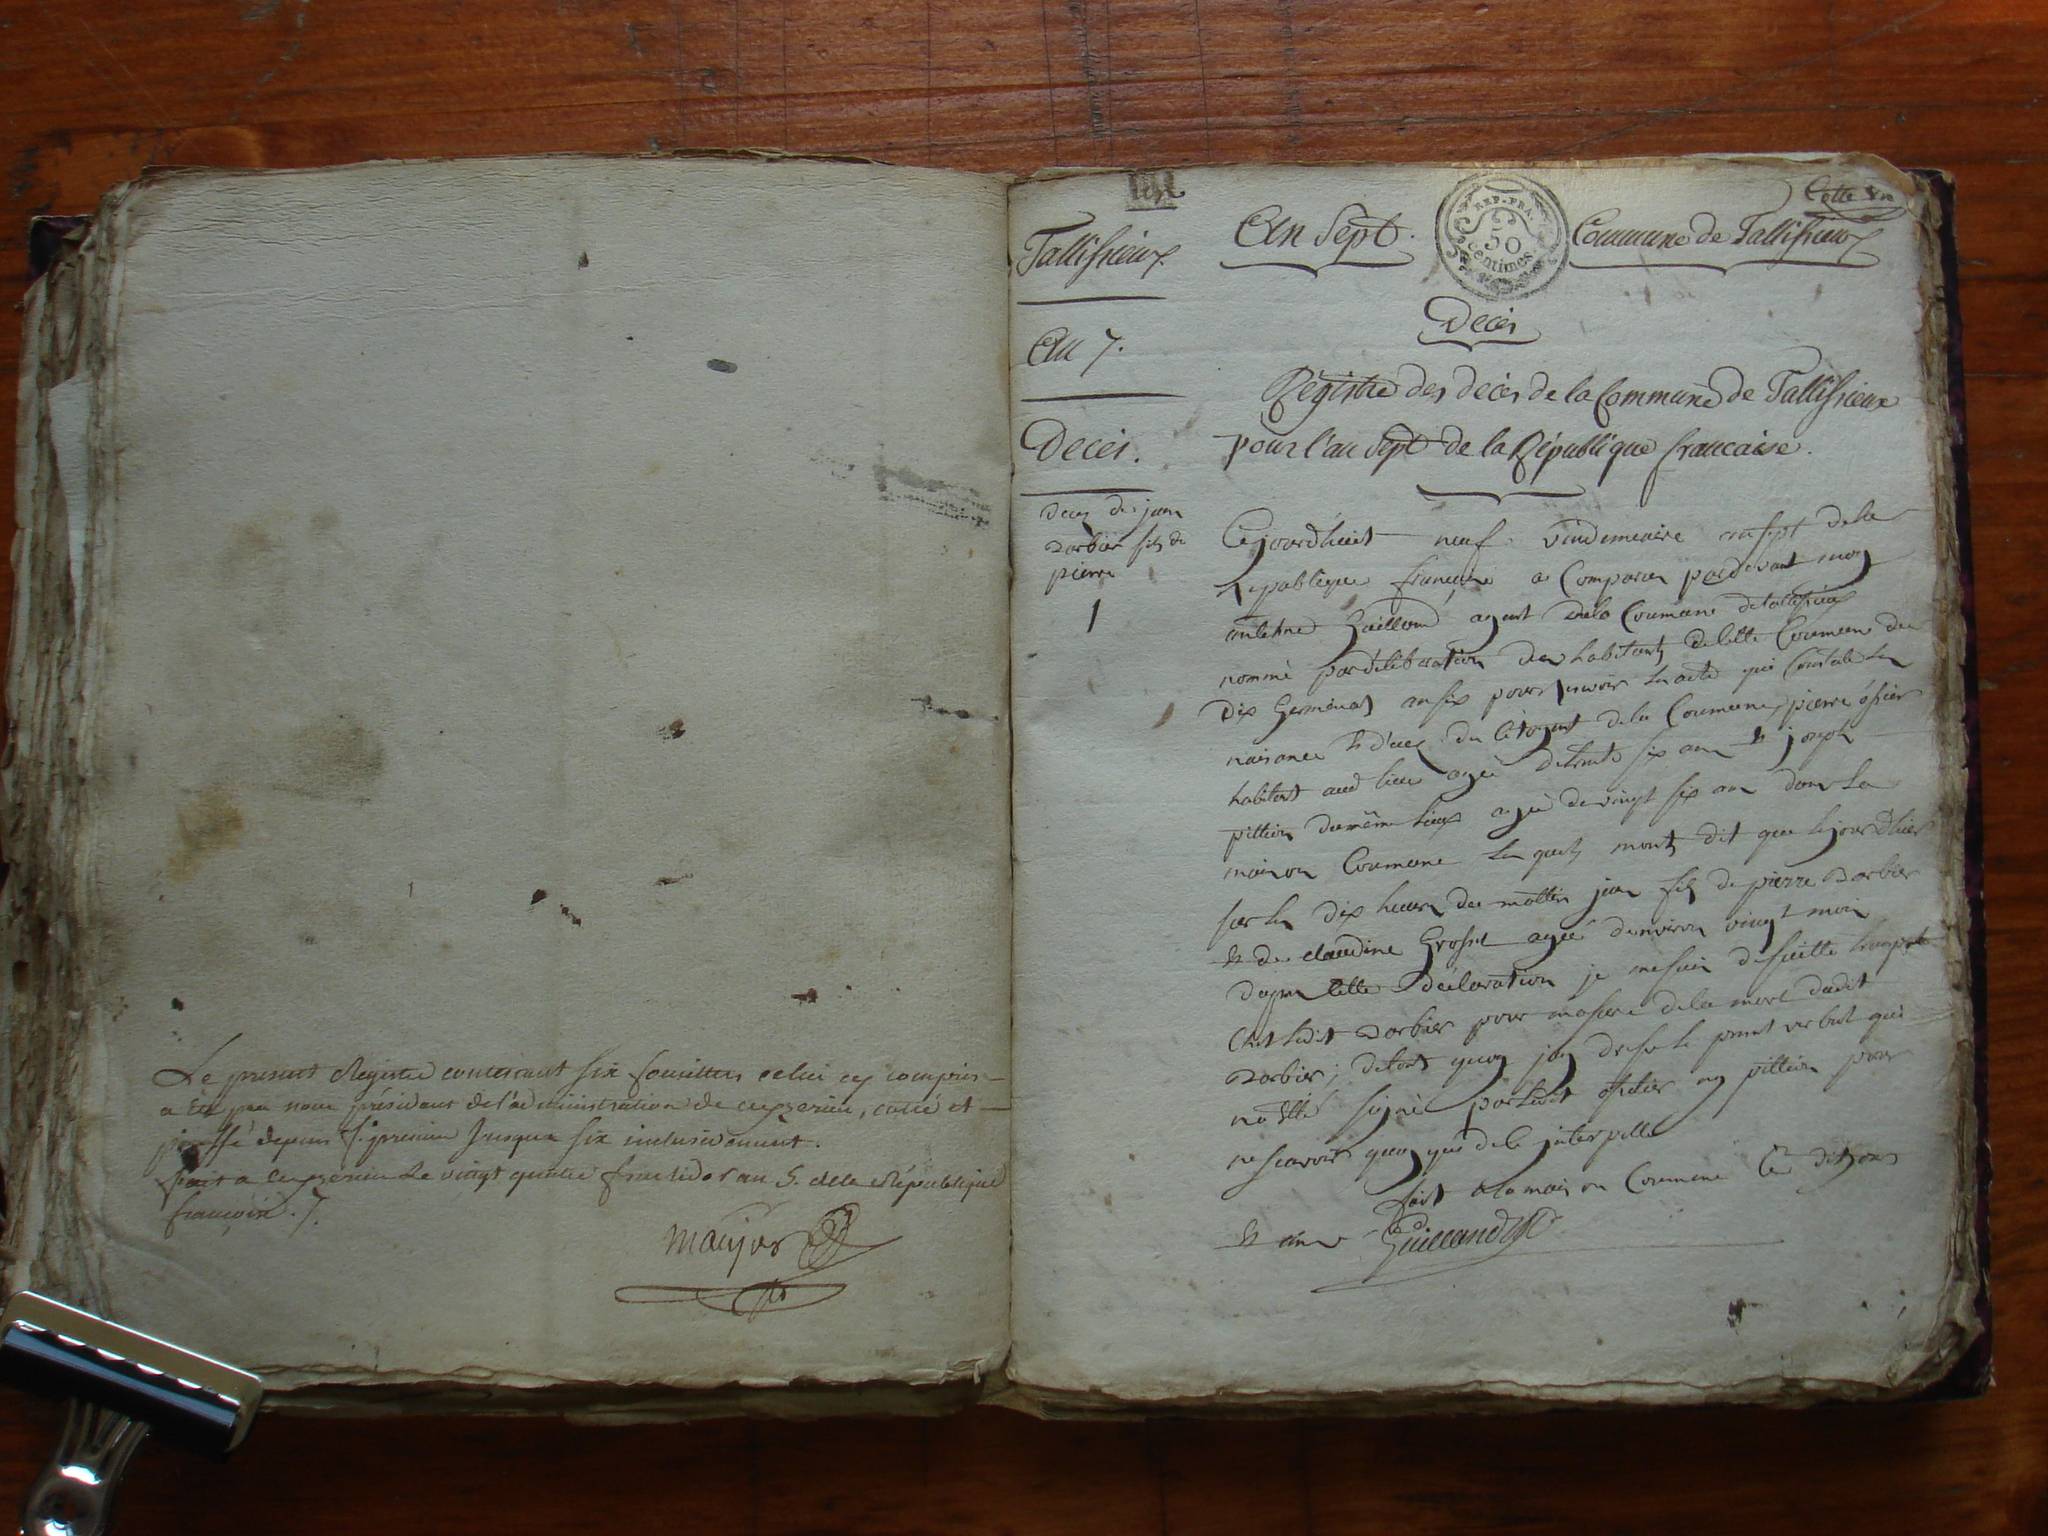 Le present Registre contenant six feuillets celui cy compris
a été par nous président de l'administration de ceyzerieu, cotté et
paraffé depuis f. premier jusqua six inclusivement.
fait a ceyzerieu Le vingt quatre fructidor an de la République
françoise
Tallissieux.
An 7.
Decès.
deces de jean
Barbier fils de
pierre
1
An Sept.
REP. FRA.
50
Centimes
Cotte
Commune de Tallissieux
Decès
Régistre des decès de la Commune de Tallissieux
pour l'an Sept de la République francaise.
Cejourdhuit neuf vindemiaire an sept de la
republique française a Comparu pardevant moy
antelme Guilland agent de la Commune de tallissieux
nommé pardélibération des habitants delatte Commune du
Dix Germinal an six pour les acte qui Constate les
naisance et déces des Citoyens de la Commune, pierre
habitant aud lieu agé detrente six ans et joseph
pittion dumême lieux agé de vingt six ans dans la
maison Commune les quels monts dit que lejour dhier
sur les dix heures du mattin jean fils de pierre Barbier
et de claudine Grosset agée denviron vingt mois
dapres cette déclaration je me suis desuitte
ledit Barbier pour masuré de la mort dudit
Barbier; detout quoy jay dressé le present verbal qui
na été signé par ledit ny pittion pour
ne scavoir quoy que de le interpellé
fait a la maison Commune les dit jour
et an
Guilland